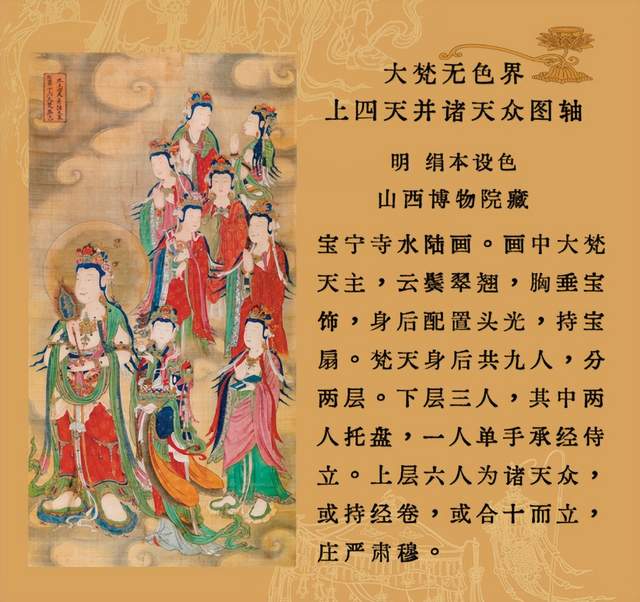 大梵无色界
上四天并诸天众图轴
明 绢本设色
山西博物院藏
宝宁寺水陆画。画中大梵
天主，云鬓翠翘，胸垂宝
饰，身后配置头光，持宝
扇。梵天身后共九人，分
两层。下层三人，其中两
人托盘，一人单手承经侍
立。上层六人为诸天众，
或持经卷，或合十而立，
庄严肃穆。